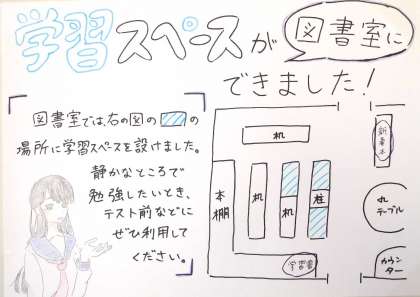 学習スペースが図書室に
できました！
図書室では、右の図の の
場所に学習スペースを設けました。
静かなところで
勉強したいとき、
テスト前などに
ぜひ利用して
ください。
机
新着本
本棚
机
机
柱
丸テーブル
学習書
カウンター